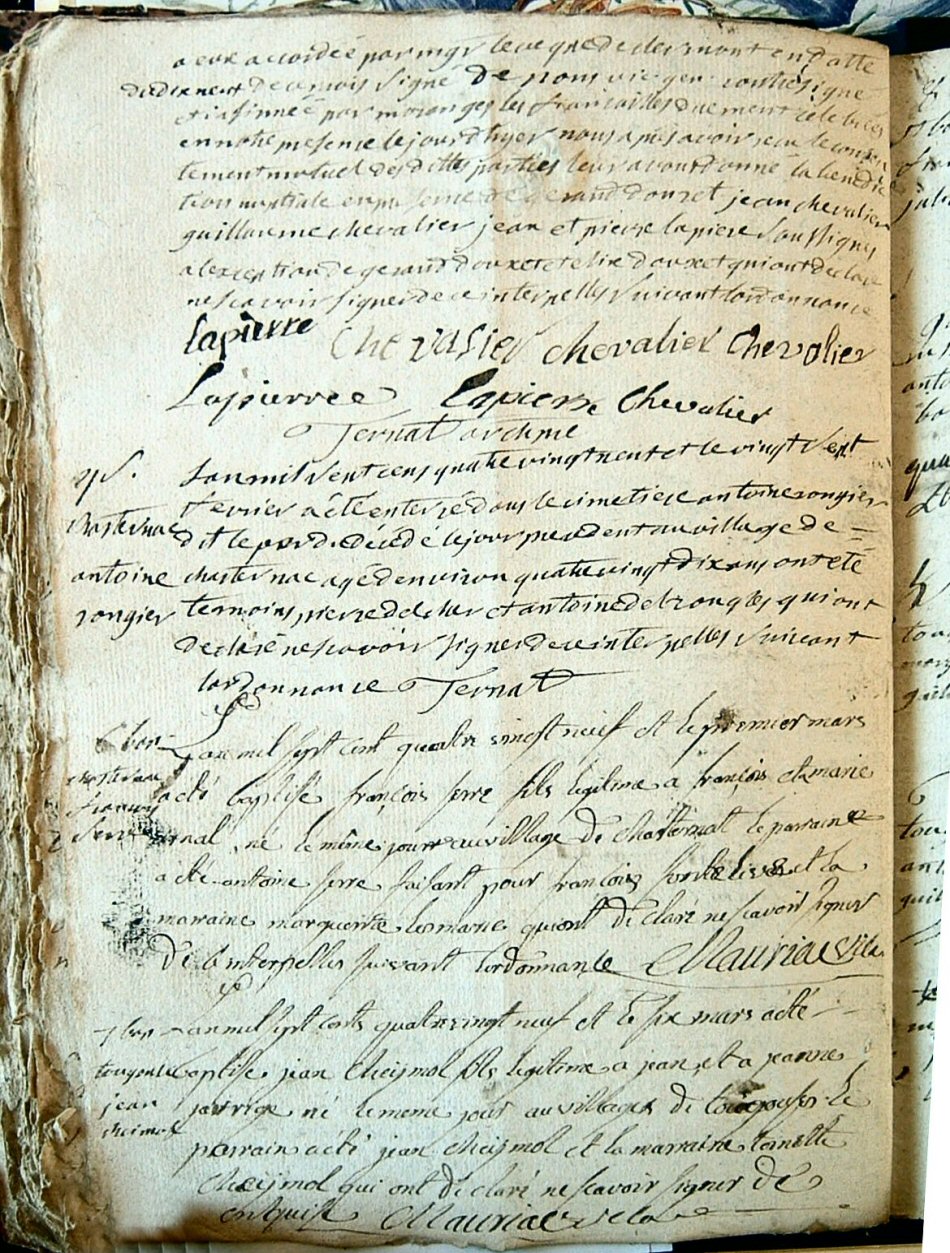 a eux accordée par mgr leveque de clermont en datte
du dix neuf de ce mois signé De pons vic gen contresigné
et insinueé par moranges les fiancailles duement celebrees
en notre presence le jour d'hyer nous apres avoir recu le consen
tement mutuel des dittes parties leur avont donné la benedic
tion nuptiale en presence de gerand douxet jean chevalier
guillaume chevalier jean et pierre lapiere soussignes
a lexception de gerand douxet et qui ont declaré
ne scavoir signer de ce interpellés suivant lordonnance
lapierre Chevalier chevalier Chevalier
Lapierree Lapierre Chevalier
Ternat
Lan mil sept cens quatre vingt neuf et le vingt sept
fevrier a été enterré dans le cimetiere antoine rongier
Chasternac
dit le decédé le jour precedent au village de
antoine
chasternac agé d'environ quatre vingt dix ans ont été
rongier
temoins pierre et antoine qui ont
declaré ne scavoir signer de ce interpellés suivant
lordonnance Ternat
Lan mil sept cent quatre vingt neuf et le premier mars
Chasternac
a été baptisé françois serre fils legitime a françois et a marie
françois
serre
né le même jour au village de Chasternat le parrain
a été antoine serre faisant pour françois et la
marraine marguerite qui ont déclaré ne scavoir signer
De ce interpellés suivant lordonnance Mauriac vic
Lan mil sept cents quatre vingt neuf et le six mars a été
baptisé jean Cheijmol fils legitime a jean et a jeanne
jean
né le meme jour au village de le
cheimol
parrain a été jean Cheijmol et la marraine toinette
Cheijmol qui ont déclaré ne scavoir signer de
ce enquis Mauriac